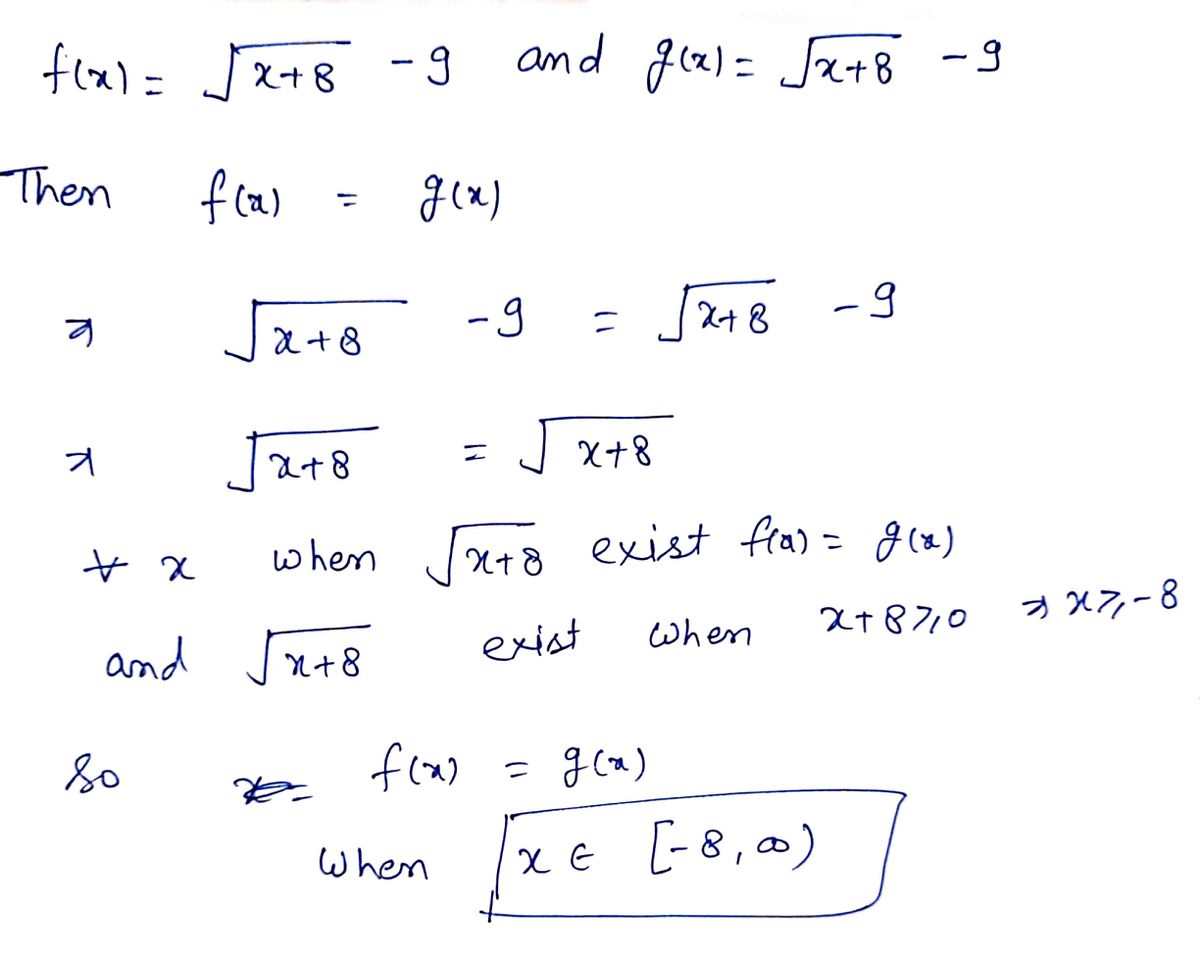 f(x) = √(x+8) - 9 and g(x) = √(x+8) - 9
Then f(x) = g(x)
⇒ √(x+8) - 9 = √(x+8) - 9
⇒ √(x+8) = √(x+8)
∀ x when √(x+8) exist f(x) = g(x)
and √(x+8) exist when x+8 ≥ 0 ⇒ x ≥ -8
So f(x) = g(x)
when x ∈ [-8, ∞)